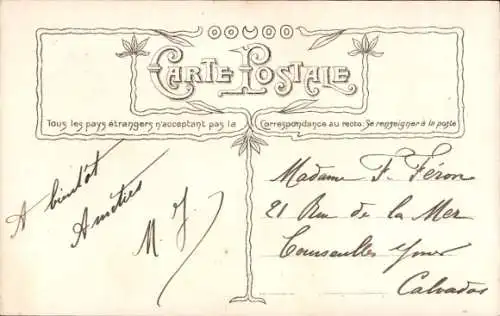 CARTE POSTALE
Tous les pays étrangers n'acceptant pas la Correspondance au recto. Se renseigner à la poste
A bientôt
Amitiés
M. J.
Madame F. Féron
21 Rue de la Mer
Courseulles s/mer
Calvados